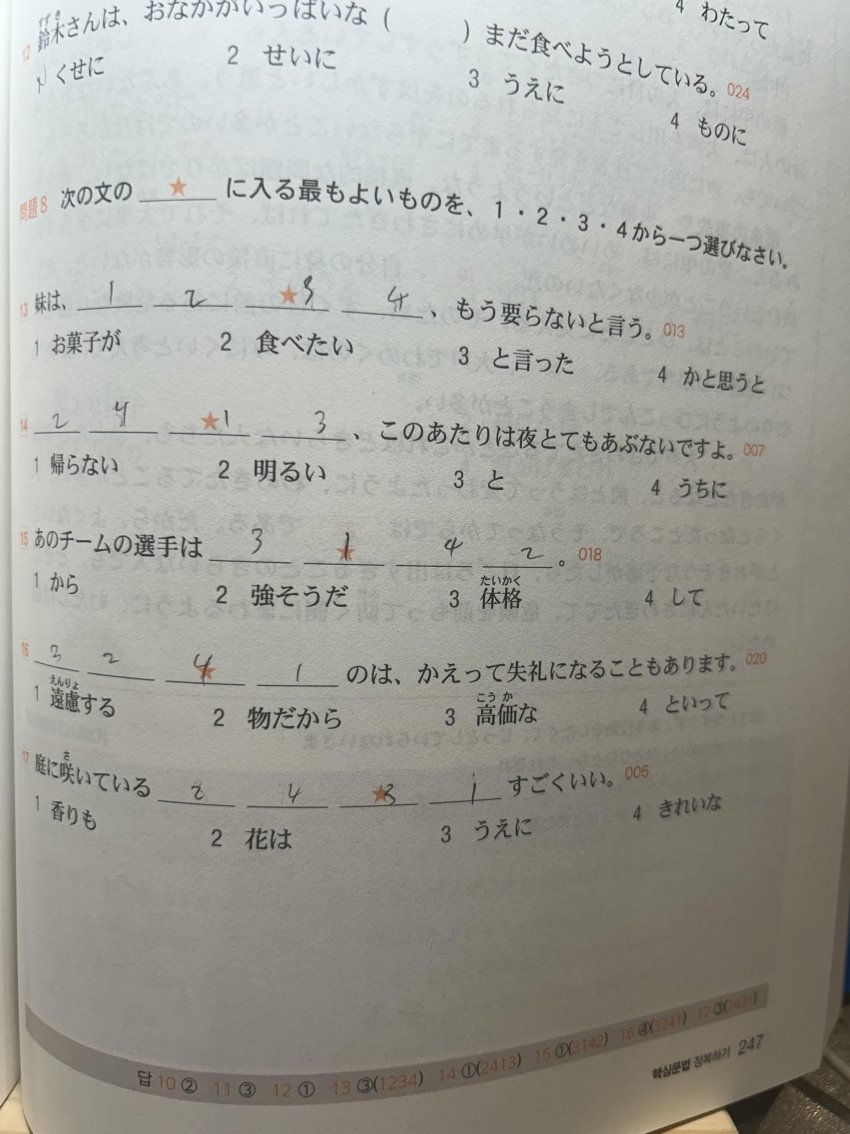 4 わたって
12 鈴木さんは、おなかがいっぱいな（　　　）まだ食べようとしている。024
1 くせに 2 せいに 3 うえに 4 ものに
問題8 次の文の ★ に入る最もよいものを、1・2・3・4から一つ選びなさい。
13 妹は、 1 2 ★3 4 、もう要らないと言う。013
1 お菓子が 2 食べたい 3 と言った 4 かと思うと
14 2 4 ★1 3 、このあたりは夜とてもあぶないですよ。007
1 帰らない 2 明るい 3 と 4 うちに
15 あのチームの選手は 3 ★1 4 2 。018
1 から 2 強そうだ 3 体格 4 して
16 3 2 ★4 1 のは、かえって失礼になることもあります。020
1 遠慮する 2 物だから 3 高価な 4 といって
17 庭に咲いている 2 4 ★3 1 すごくいい。005
1 香りも 2 花は 3 うえに 4 きれいな
답 10 ② 11 ③ 12 ① 13 ③(1234) 14 ①(2413) 15 ①(3142) 16 ④(3241) 17 ③(2431)
핵심문법 정복하기 247